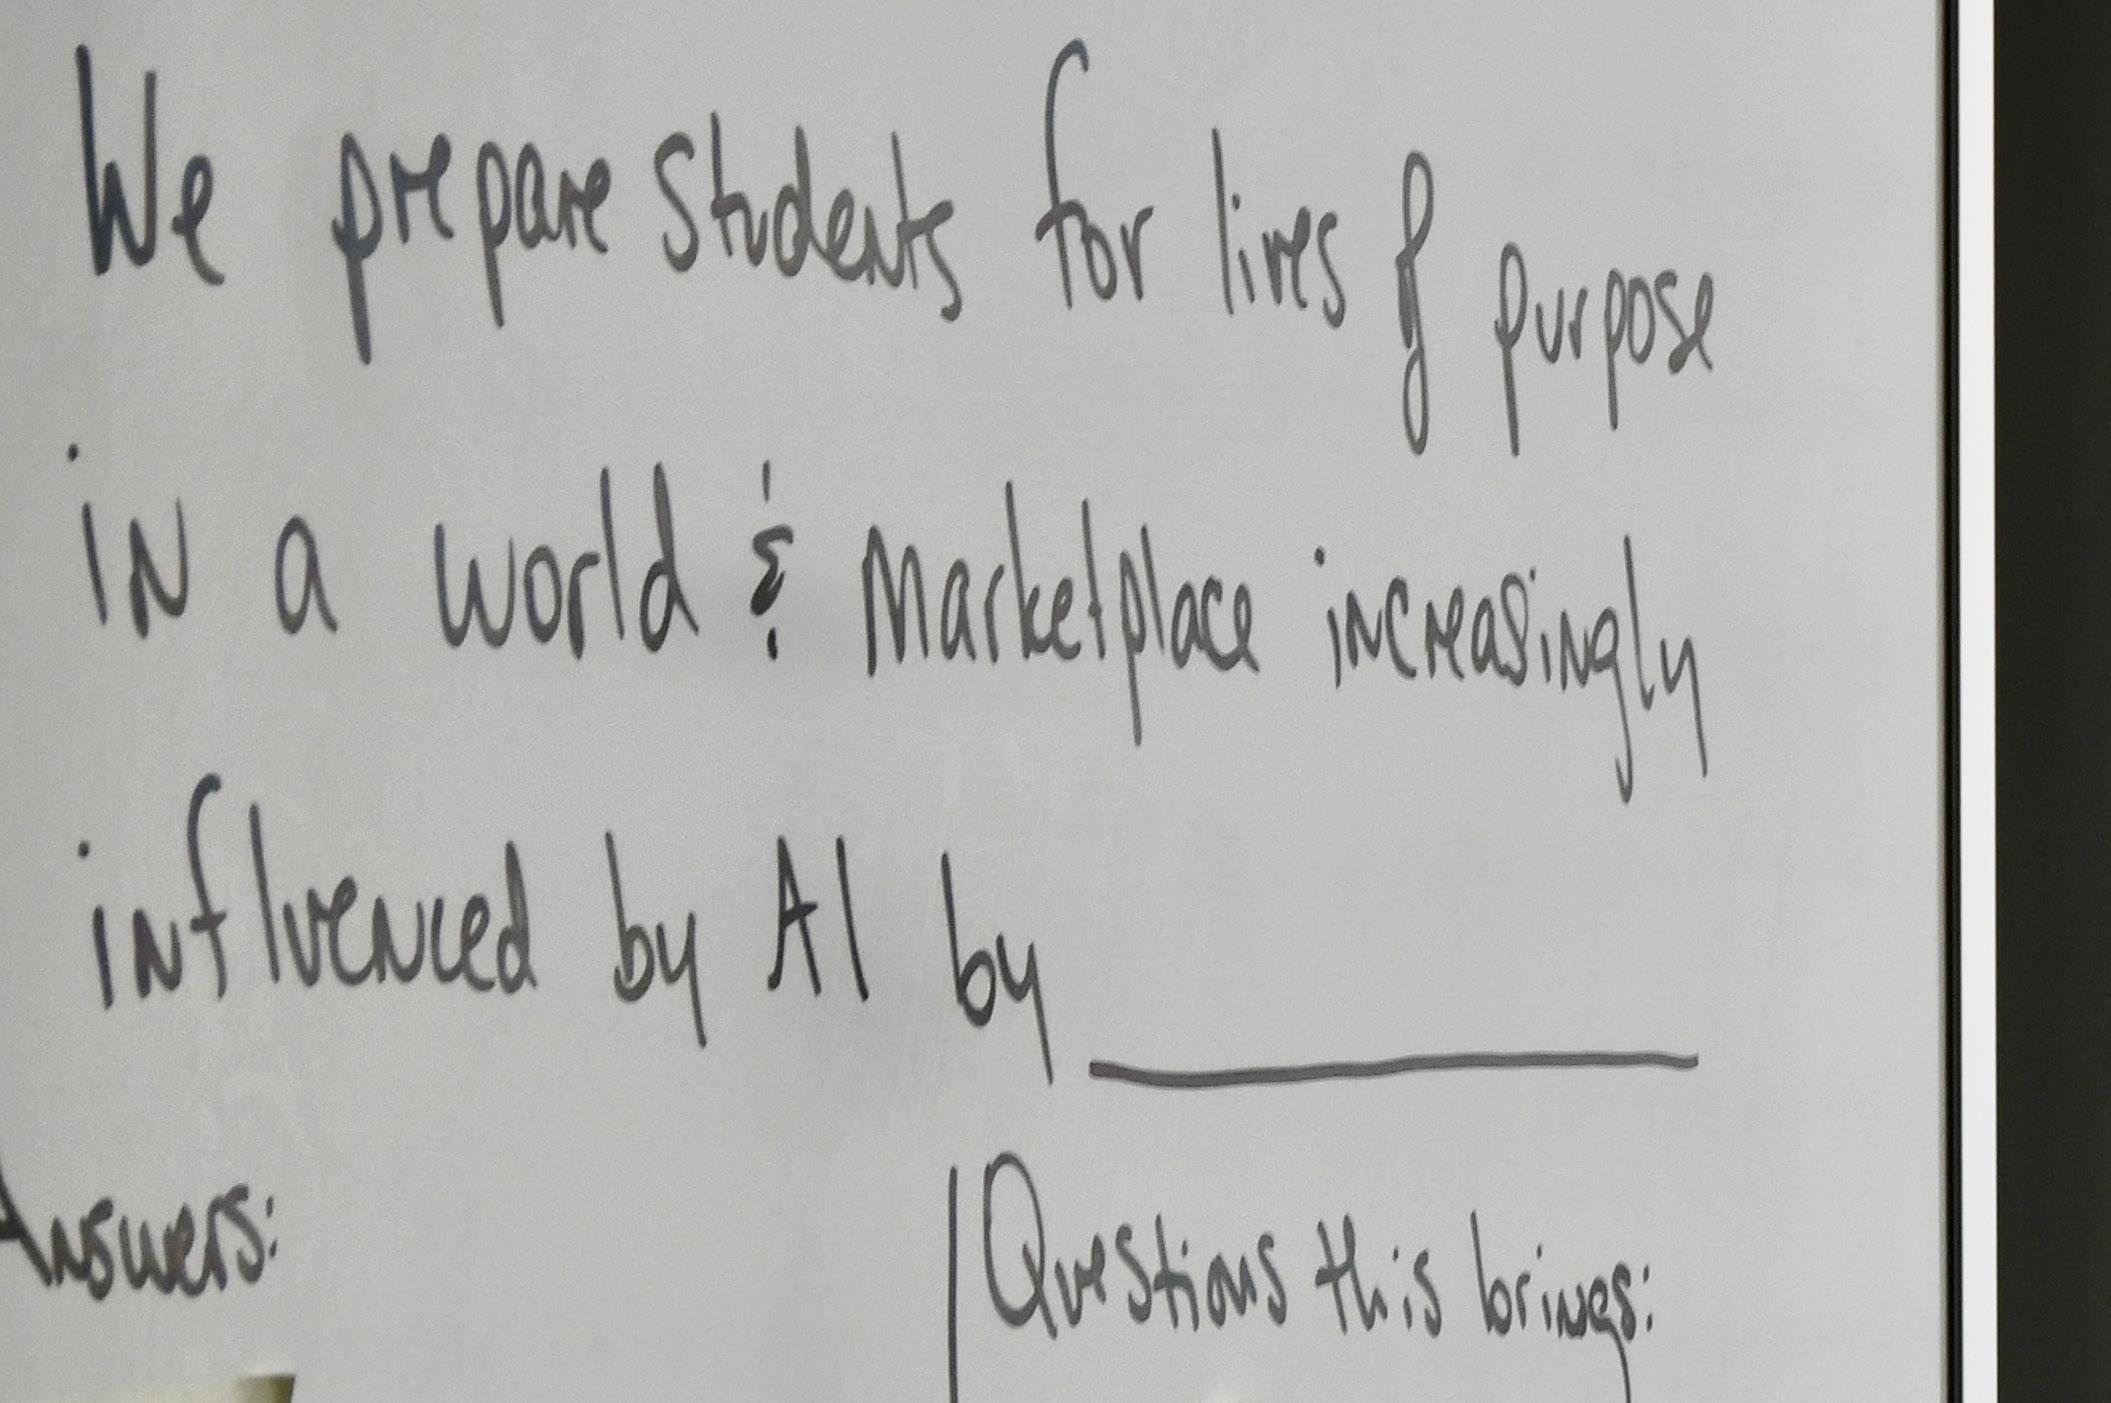 We prepare students for lives of purpose
in a world & marketplace increasingly
influenced by AI by ________
Answers:
Questions this brings: